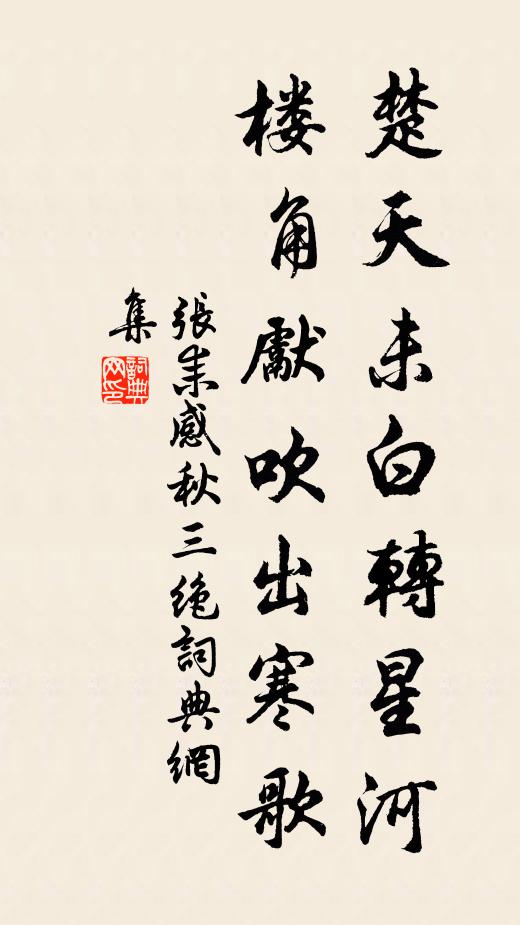 楚天未白轉星河
楼角獻吹出寒歌
張耒感秋三絶詞典網
集
詞典
网印